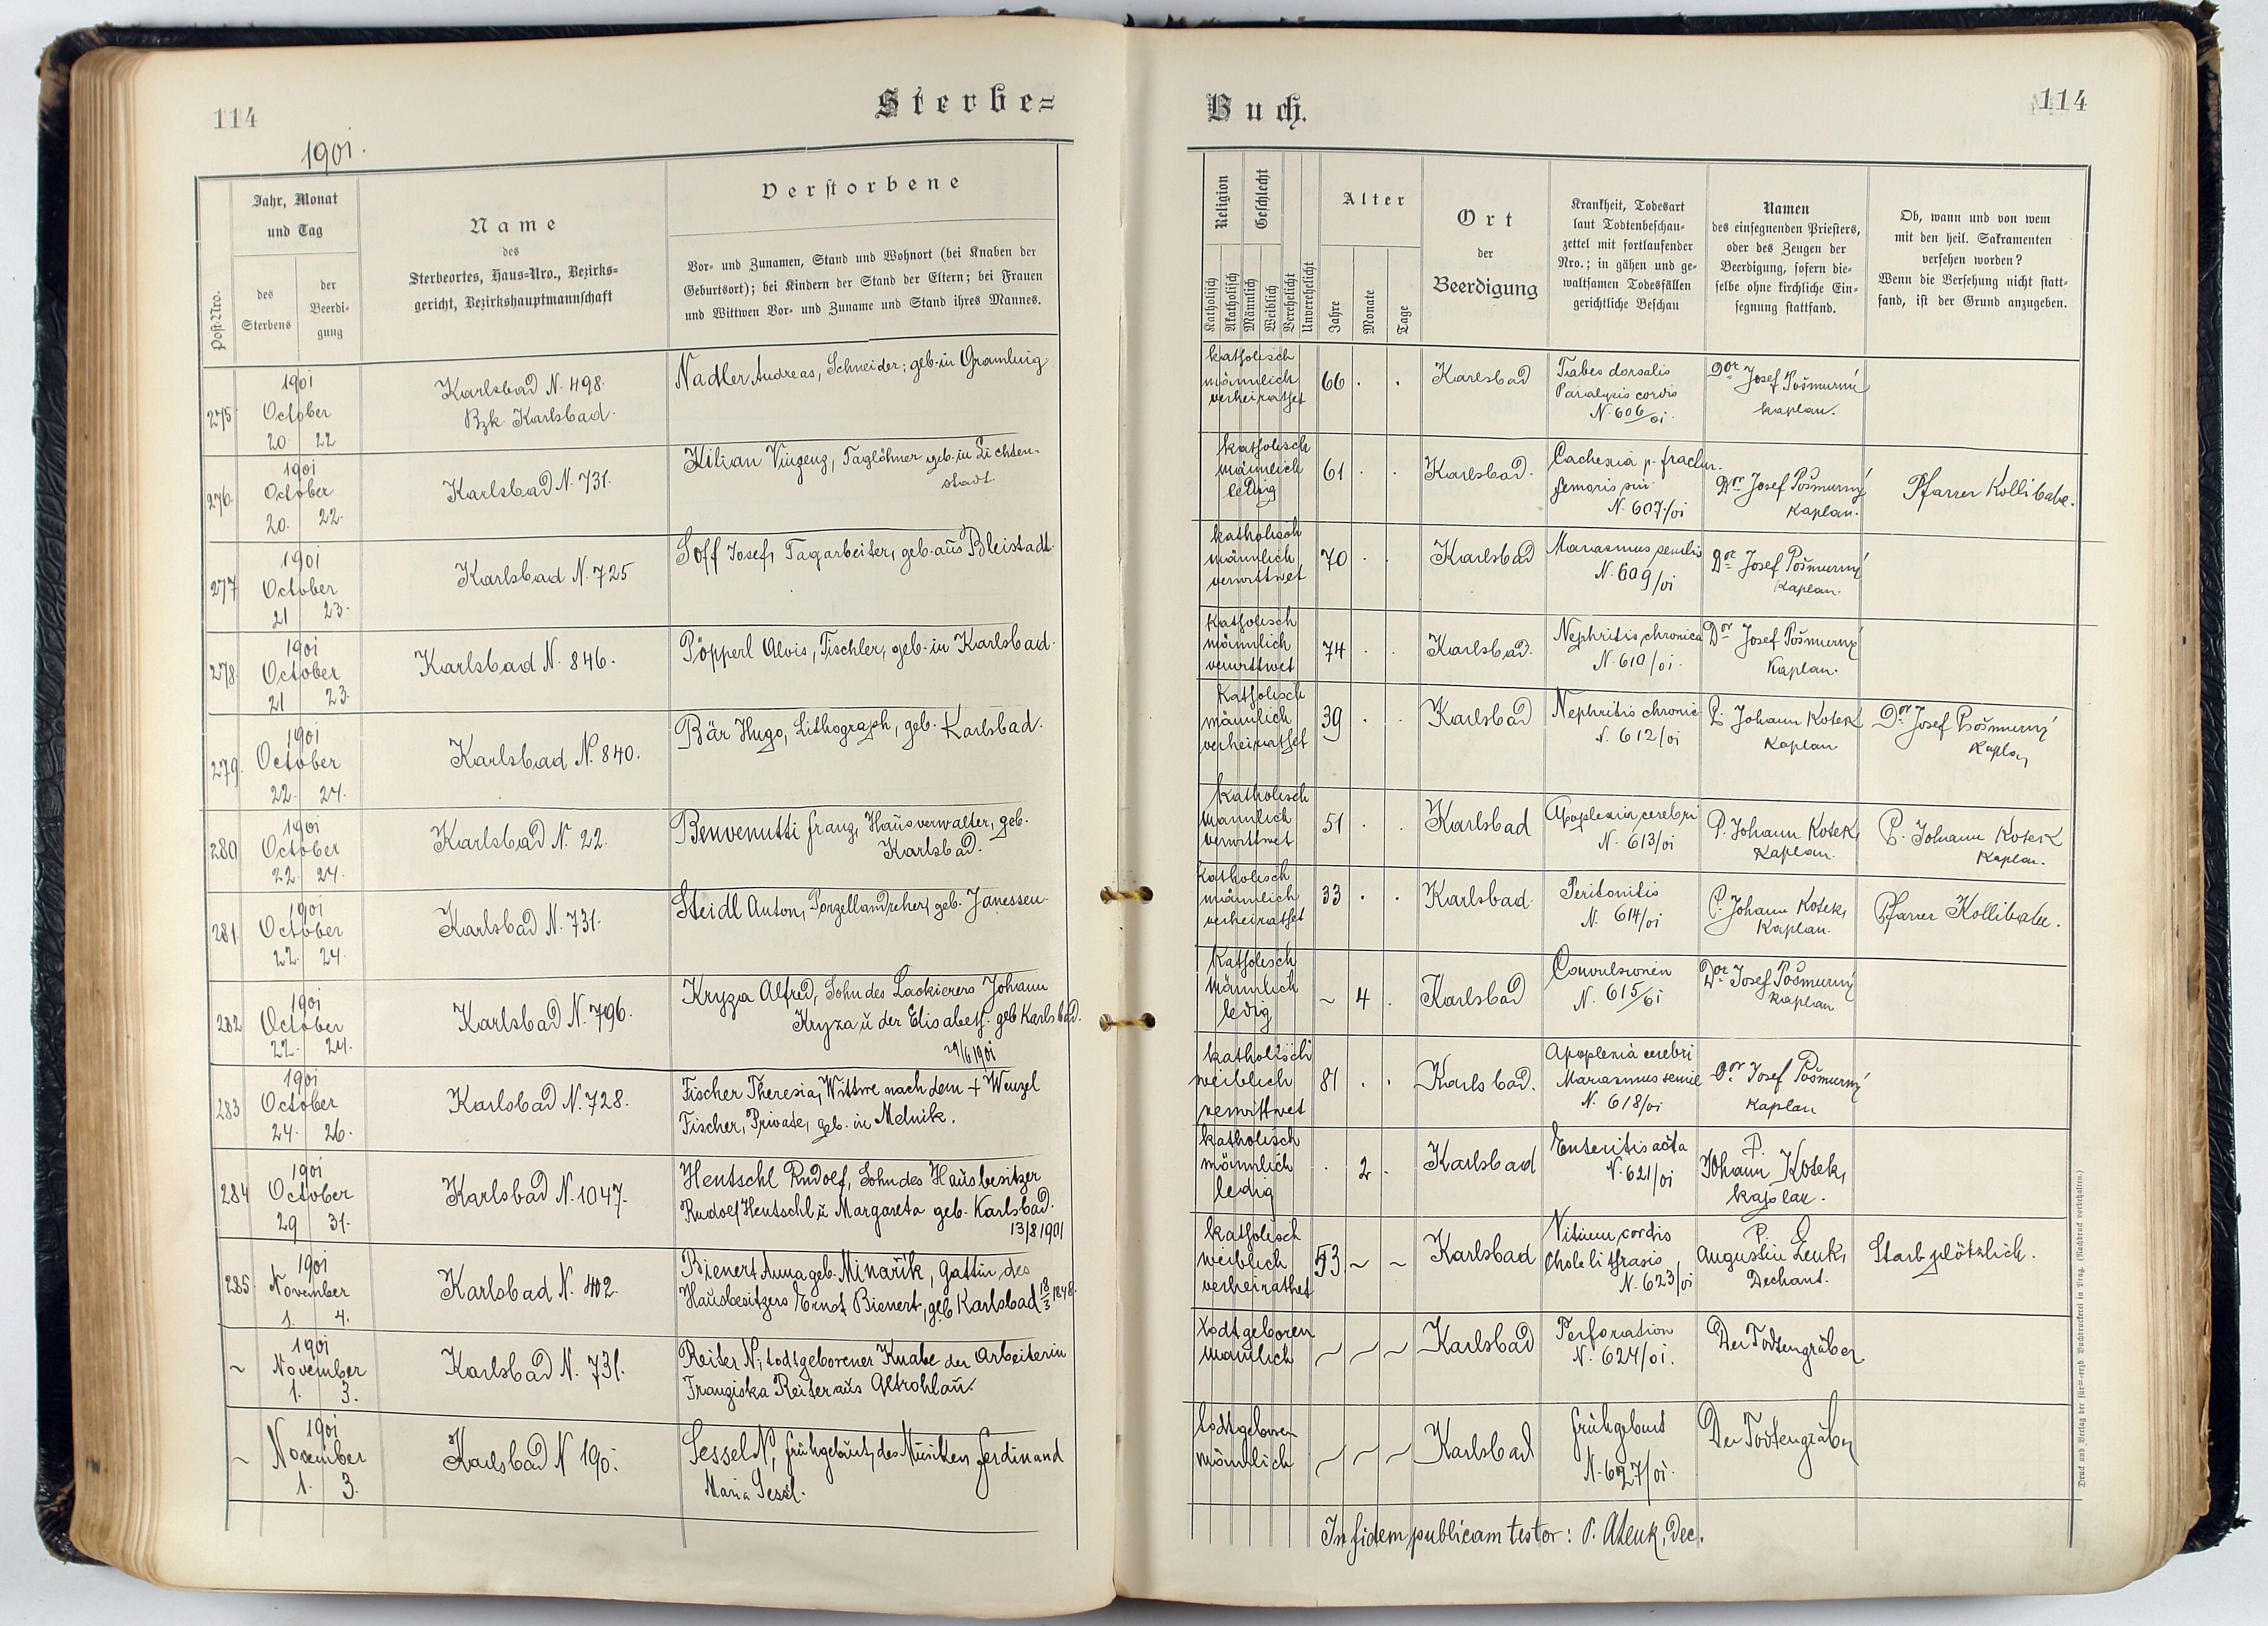 114
Sterbe=
1901.
Post-Nro.
Jahr, Monat
und Tag
des
Sterbens
der
Beerdi-
gung
Name
des
Sterbeortes, Haus=Nro., Bezirks=
gericht, Bezirkshauptmannschaft
Verstorbene
Vor- und Zunamen, Stand und Wohnort (bei Knaben der
Geburtsort); bei Kindern der Stand der Eltern; bei Frauen
und Wittwen Vor- und Zuname und Stand ihres Mannes.
275
1901
October
20. 22
Karlsbad N. 498.
Bzk. Karlsbad.
Nadler Andreas, Schneider; geb. in Gramling
276.
1901
October
20. 22.
Karlsbad N. 731.
Kilian Vinzenz, Taglöhner geb. in Lichten-
stadt
277
1901
October
21 23.
Karlsbad N. 725
Soff Josef, Tagarbeiter, geb. aus Bleistadt.
278.
1901
October
21 23.
Karlsbad N. 846.
Pöpperl Alois, Tischler, geb. in Karlsbad.
279.
1901
October
22. 24.
Karlsbad N. 840.
Bär Hugo, Lithograph, geb. Karlsbad.
280
1901
October
22. 24.
Karlsbad N. 22.
Benvenutti Franz, Hausverwalter, geb.
Karlsbad.
281.
1901
October
22. 24.
Karlsbad N. 731.
Steidl Anton, Porzellandreher, geb. Janessen.
282
1901
October
22. 24.
Karlsbad N. 796.
Kryza Alfred, Sohn des Lackierers Johann
Kryza u der Elisabeth. geb Karlsbad.
29/6 1901
283
1901
October
24. 26.
Karlsbad N. 728.
Fischer Theresia, Wittwe nach dem + Wenzel
Fischer, Private, geb. in Melnik.
284
1901
October
29 31.
Karlsbad N. 1047.
Hentschl Rudolf, Sohn des Hausbesitzer
Rudolf Hentschl u Margareta geb. Karlsbad.
13/8 1901
285.
1901
November
1. 4.
Karlsbad N. 402.
Bienert Anna geb. Minařík, Gattin des
Hausbesitzers Ernst Bienert, geb Karlsbad 18/3 1848.
~
1901
November
1. 3.
Karlsbad N. 731.
Reiter N, todtgeborener Knabe der Arbeiterin
Franziska Reiter aus Altrohlau.
~
1901
November
1. 3.
Karlsbad N 190.
Sessel N, Frühgeburt, des Musikers Ferdinand
Maria Sessl.
Buch.
114
Religion
Katholisch
Akatholisch
Geschlecht
Männlich
Weiblich
Verehelicht
Unverehelicht
Alter
Jahre
Monate
Tage
Ort
der
Beerdigung
Krankheit, Todesart
laut Todtenbeschau-
zettel mit fortlaufender
Nro.; in gähen und ge-
waltsamen Todesfällen
gerichtliche Beschau
Namen
des einsegnenden Priesters,
oder des Zeugen der
Beerdigung, sofern die-
selbe ohne kirchliche Ein-
segnung stattfand.
Ob, wann und von wem
mit den heil. Sakramenten
versehen worden?
Wenn die Versehung nicht statt-
fand, ist der Grund anzugeben.
katholisch
männlich
verheirathet
66 . .
Karlsbad
Tabes dorsalis
Paralysis cordis
N. 606/01.
Dor Josef Pošmurný
Kaplan.
katholisch
männlich
ledig
61 . .
Karlsbad.
Cachexia p. fractur.
femoris sin.
N. 607/01
Dor Josef Pošmurný
Kaplan.
Pfarrer Kollibabe.
katholisch
männlich
verwittwet
70 . .
Karlsbad
Marasmus senilis
N. 609/01
Dor Josef Pošmurný
Kaplan.
katholisch
männlich
verwittwet
74 . .
Karlsbad.
Nephritis chronica
N. 610/01.
Dor Josef Pošmurný
Kaplan.
Katholisch
männlich
verheirathet
39 . .
Karlsbad
Nephritis chronic
N. 612/01
P. Johann Kotek
Kaplan
Dor Josef Pošmurný
Kaplan
Katholisch
männlich
verwittwet
51 . .
Karlsbad
Apoplexia cerebri
N. 613/01
P. Johann Kotek,
Kaplan.
P. Johann Kotek
Kaplan.
Katholisch
männlich
verheirathet
33 . .
Karlsbad
Peritonitis
N. 614/01
P. Johann Kotek,
Kaplan.
Pfarrer Kollibabe.
Katholisch
männlich
ledig
~ 4 .
Karlsbad
Convulsionen
N. 615/01
Dor Josef Pošmurný
Kaplan
katholisch
weiblich
verwittwet
81 . .
Karlsbad.
Apoplexia cerebri
Marasmus senil
N. 618/01
Dor Josef Pošmurný
Kaplan
katholisch
männlich
ledig
. 2 .
Karlsbad
Enteritis acuta
N. 621/01
P.
Johann Kotek,
Kaplan.
katholisch
weiblich
verheirathet
53 ~ ~
Karlsbad
Vitium cordis
Cholelithiasis
N. 623/01
P.
Augustin Zenk,
Dechant.
Starb plötzlich.
Todtgeboren
männlich
~ ~ ~
Karlsbad
Perforation
N. 624/01.
Der Todtengräber
todtgeboren
männlich
~ ~ ~
Karlsbad
Frühgeburt
N. 627/01.
Der Todtengräber
In fidem publicam testor: P. AZenk, Dec.
Druck und Verlag der fürst=erzb. Buchdruckerei in Prag. (Nachdruck vorbehalten.)